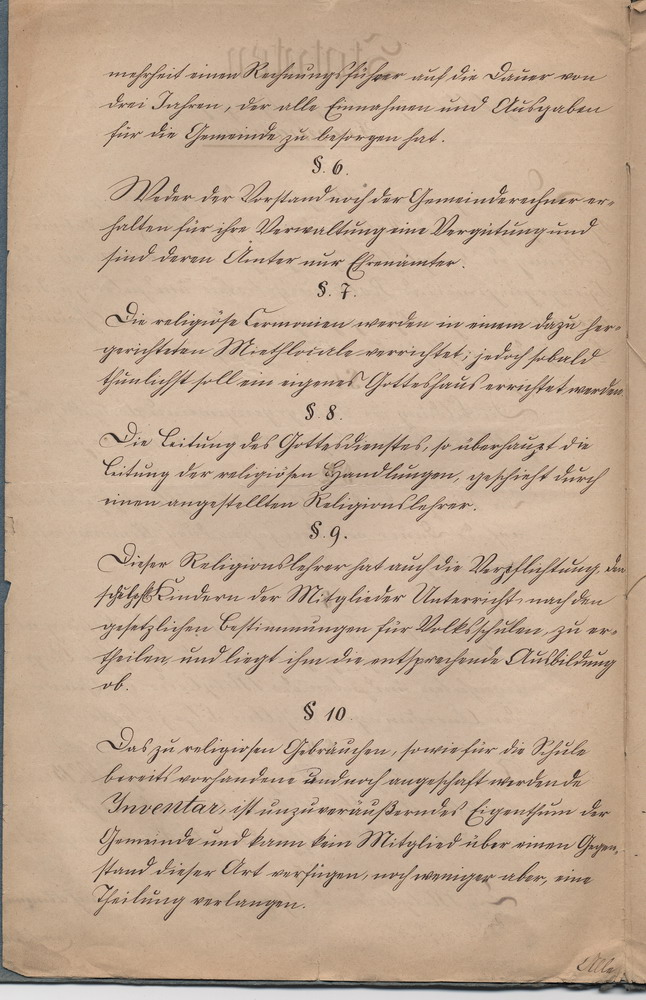 mehrheit einen Rechnungsführer auf die Dauer von
drei Jahren, der alle Einnahmen und Ausgaben
für die Gemeinde zu besorgen hat.
§. 6.
Weder der Vorstand noch der Gemeinderechner er-
halten für ihre Verwaltung eine Vergütung und
sind deren Ämter nur Ehrenämter.
§. 7.
Die religiöse Cermonien werden in einem dazu her-
gerichteten Miethlocale verrichtet; jedoch sobald
thunlichst soll ein eigenes Gotteshaus errichtet werden
§. 8.
Die Leitung des Gottesdienstes, so überhaupt die
Leitung der religiösen Handlungen, geschieht durch
einen angestellten Religionslehrer.
§. 9.
Dieser Religionslehrer hat auch die Verpflichtung, den
schulpfl. Kindern der Mitglieder Unterricht, nach den
gesetzlichen Bestimmungen für Volksschulen, zu er-
theilen und liegt ihm die entsprechende Ausbildung
ob.
§ 10.
Das zu religiösen Gebräuchen, sowie für die Schule
bereits vorhandene und noch angeschaft werdende
Inventar, ist unzuveräußerndes Eigenthum der
Gemeinde und kann kein Mitglied über einen Gegen-
stand dieser Art verfügen, noch weniger aber, eine
Theilung verlangen.